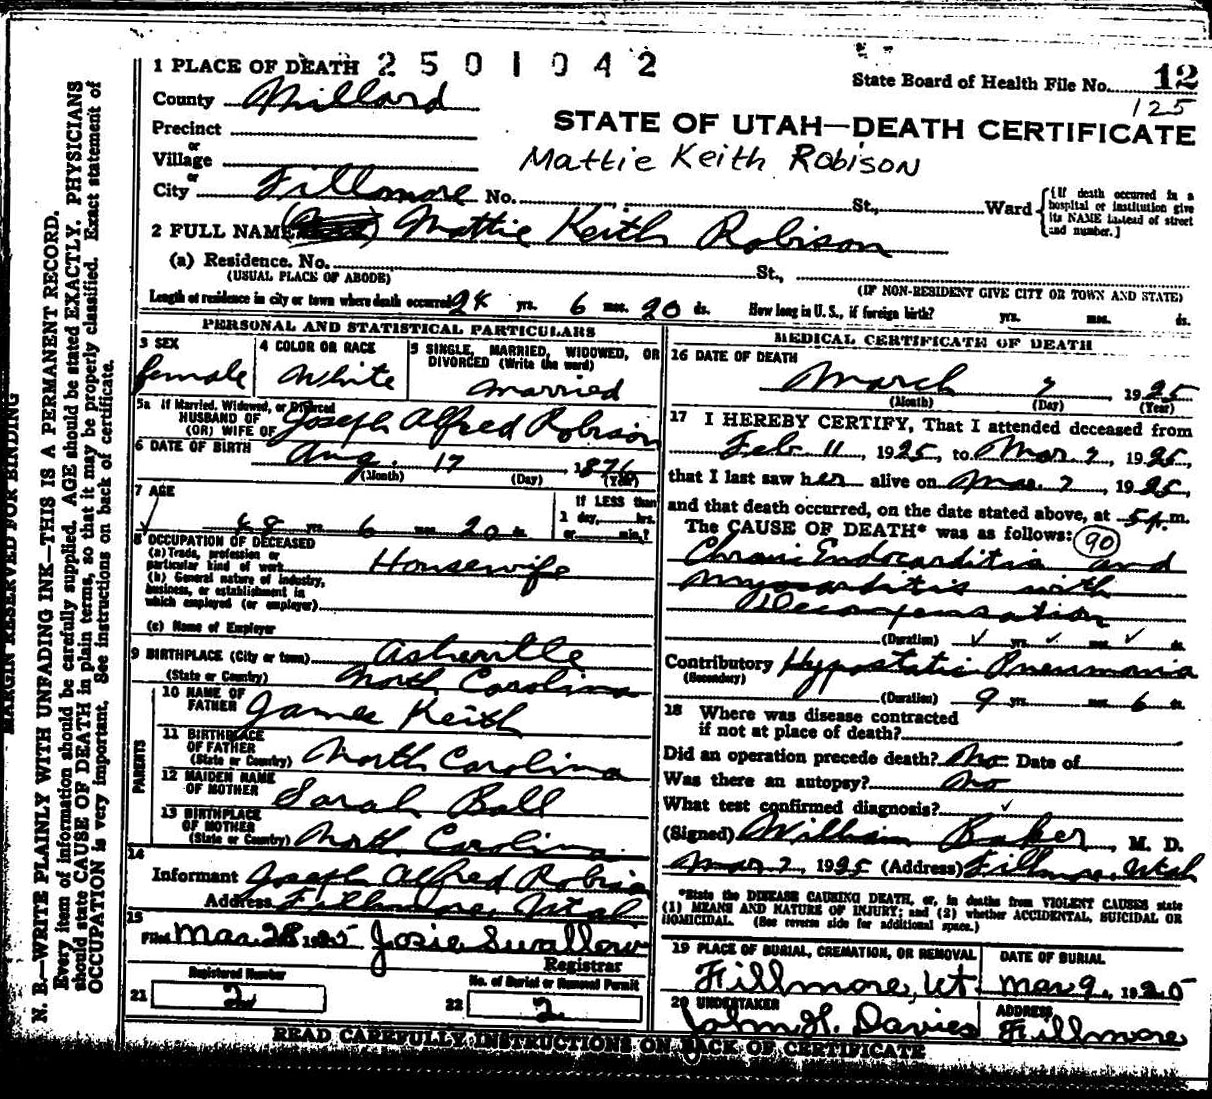 1 PLACE OF DEATH 2 5 0 1 0 4 2
State Board of Health File No. 12
125
County Millard
STATE OF UTAH—DEATH CERTIFICATE
Precinct
or
Village
Mattie Keith Robison
or
City Fillmore No. St., Ward
{If death occurred in a
hospital or institution give
its NAME instead of street
and number.}
2 FULL NAME Mattie Keith Robison
(a) Residence. No. St.,
(USUAL PLACE OF ABODE)
(IF NON-RESIDENT GIVE CITY OR TOWN AND STATE)
Length of residence in city or town where death occurred 24 yrs. 6 mos. 20 ds. How long in U. S., if foreign birth? yrs. mos. ds.
PERSONAL AND STATISTICAL PARTICULARS
3 SEX
female
4 COLOR OR RACE
White
5 SINGLE, MARRIED, WIDOWED, OR
DIVORCED (Write the word)
married
5a If Married, Widowed, or Divorced
HUSBAND OF
(OR) WIFE OF Joseph Alfred Robison
6 DATE OF BIRTH
Aug. 17, 1876
(Month) (Day) (Year)
7 AGE
48 yrs. 6 mos. 20 ds.
If LESS than
1 day, hrs.
or min.?
8 OCCUPATION OF DECEASED
(a) Trade, profession or
particular kind of work Housewife
(b) General nature of industry,
business, or establishment in
which employed (or employer)
(c) Name of Employer
9 BIRTHPLACE (City or town) Asheville
(State or Country) North Carolina
PARENTS
10 NAME OF
FATHER James Keith
11 BIRTHPLACE
OF FATHER
(State or Country) North Carolina
12 MAIDEN NAME
OF MOTHER Sarah Ball
13 BIRTHPLACE
OF MOTHER
(State or Country) North Carolina
14
Informant Joseph Alfred Robison
Address Fillmore, Utah
15
Filed Mar 28 1925 Josie Swallow
Registrar
Registered Number
21 2
No. of Burial or Removal Permit
22 2
MEDICAL CERTIFICATE OF DEATH
16 DATE OF DEATH
March 7 1925
(Month) (Day) (Year)
17 I HEREBY CERTIFY, That I attended deceased from
Feb. 11, 1925, to Mar 7, 1925,
that I last saw her alive on Mar. 7, 1925,
and that death occurred, on the date stated above, at 5 p. m.
The CAUSE OF DEATH* was as follows: 90
Chronic Endocarditis and
myocarditis with
Decompensation
(Duration) yrs. mos. ds.
Contributory Hypostatic Pneumonia
(Secondary)
(Duration) 9 yrs. mos. 6 ds.
18 Where was disease contracted
if not at place of death?
Did an operation precede death? No Date of
Was there an autopsy? No
What test confirmed diagnosis? ✓
(Signed) William Baker, M. D.
Mar 7, 1925 (Address) Fillmore, Utah
*State the DISEASE CAUSING DEATH, or, in deaths from VIOLENT CAUSES state
(1) MEANS AND NATURE OF INJURY; and (2) whether ACCIDENTAL, SUICIDAL OR
HOMICIDAL. (See reverse side for additional space.)
19 PLACE OF BURIAL, CREMATION, OR REMOVAL
Fillmore, Ut.
DATE OF BURIAL
Mar 9, 1925
20 UNDERTAKER
John H. Davies
ADDRESS
Fillmore
READ CAREFULLY INSTRUCTIONS ON BACK OF CERTIFICATE
MARGIN RESERVED FOR BINDING
N. B.—WRITE PLAINLY WITH UNFADING INK—THIS IS A PERMANENT RECORD.
Every item of information should be carefully supplied. AGE should be stated EXACTLY. PHYSICIANS
should state CAUSE OF DEATH in plain terms, so that it may be properly classified. Exact statement of
OCCUPATION is very important. See instructions on back of certificate.